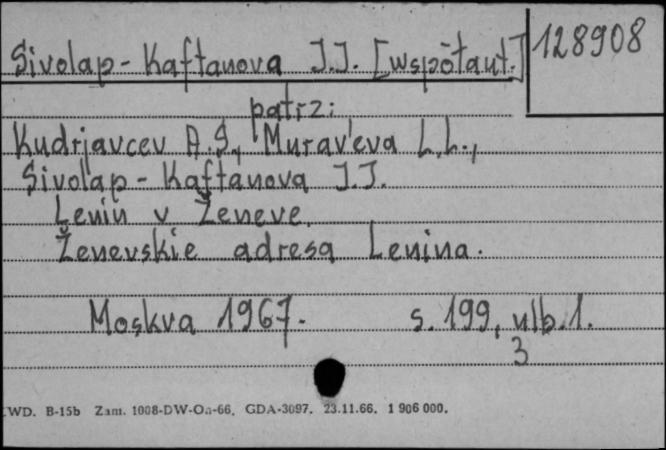 Sivolap-Kaftanova J.J. [współaut.]
128908
patrz:
Kudrjavcev A.S., Murav'eva L.L.,
Sivolap-Kaftanova J.J.
Lenin v Ženeve.
Ženevskie adresa Lenina.
Moskva 1967. s. 199, ulb. 1.
3
WD. B-15b Zam. 1008-DW-Oa-66. GDA-3097. 23.11.66. 1 906 000.